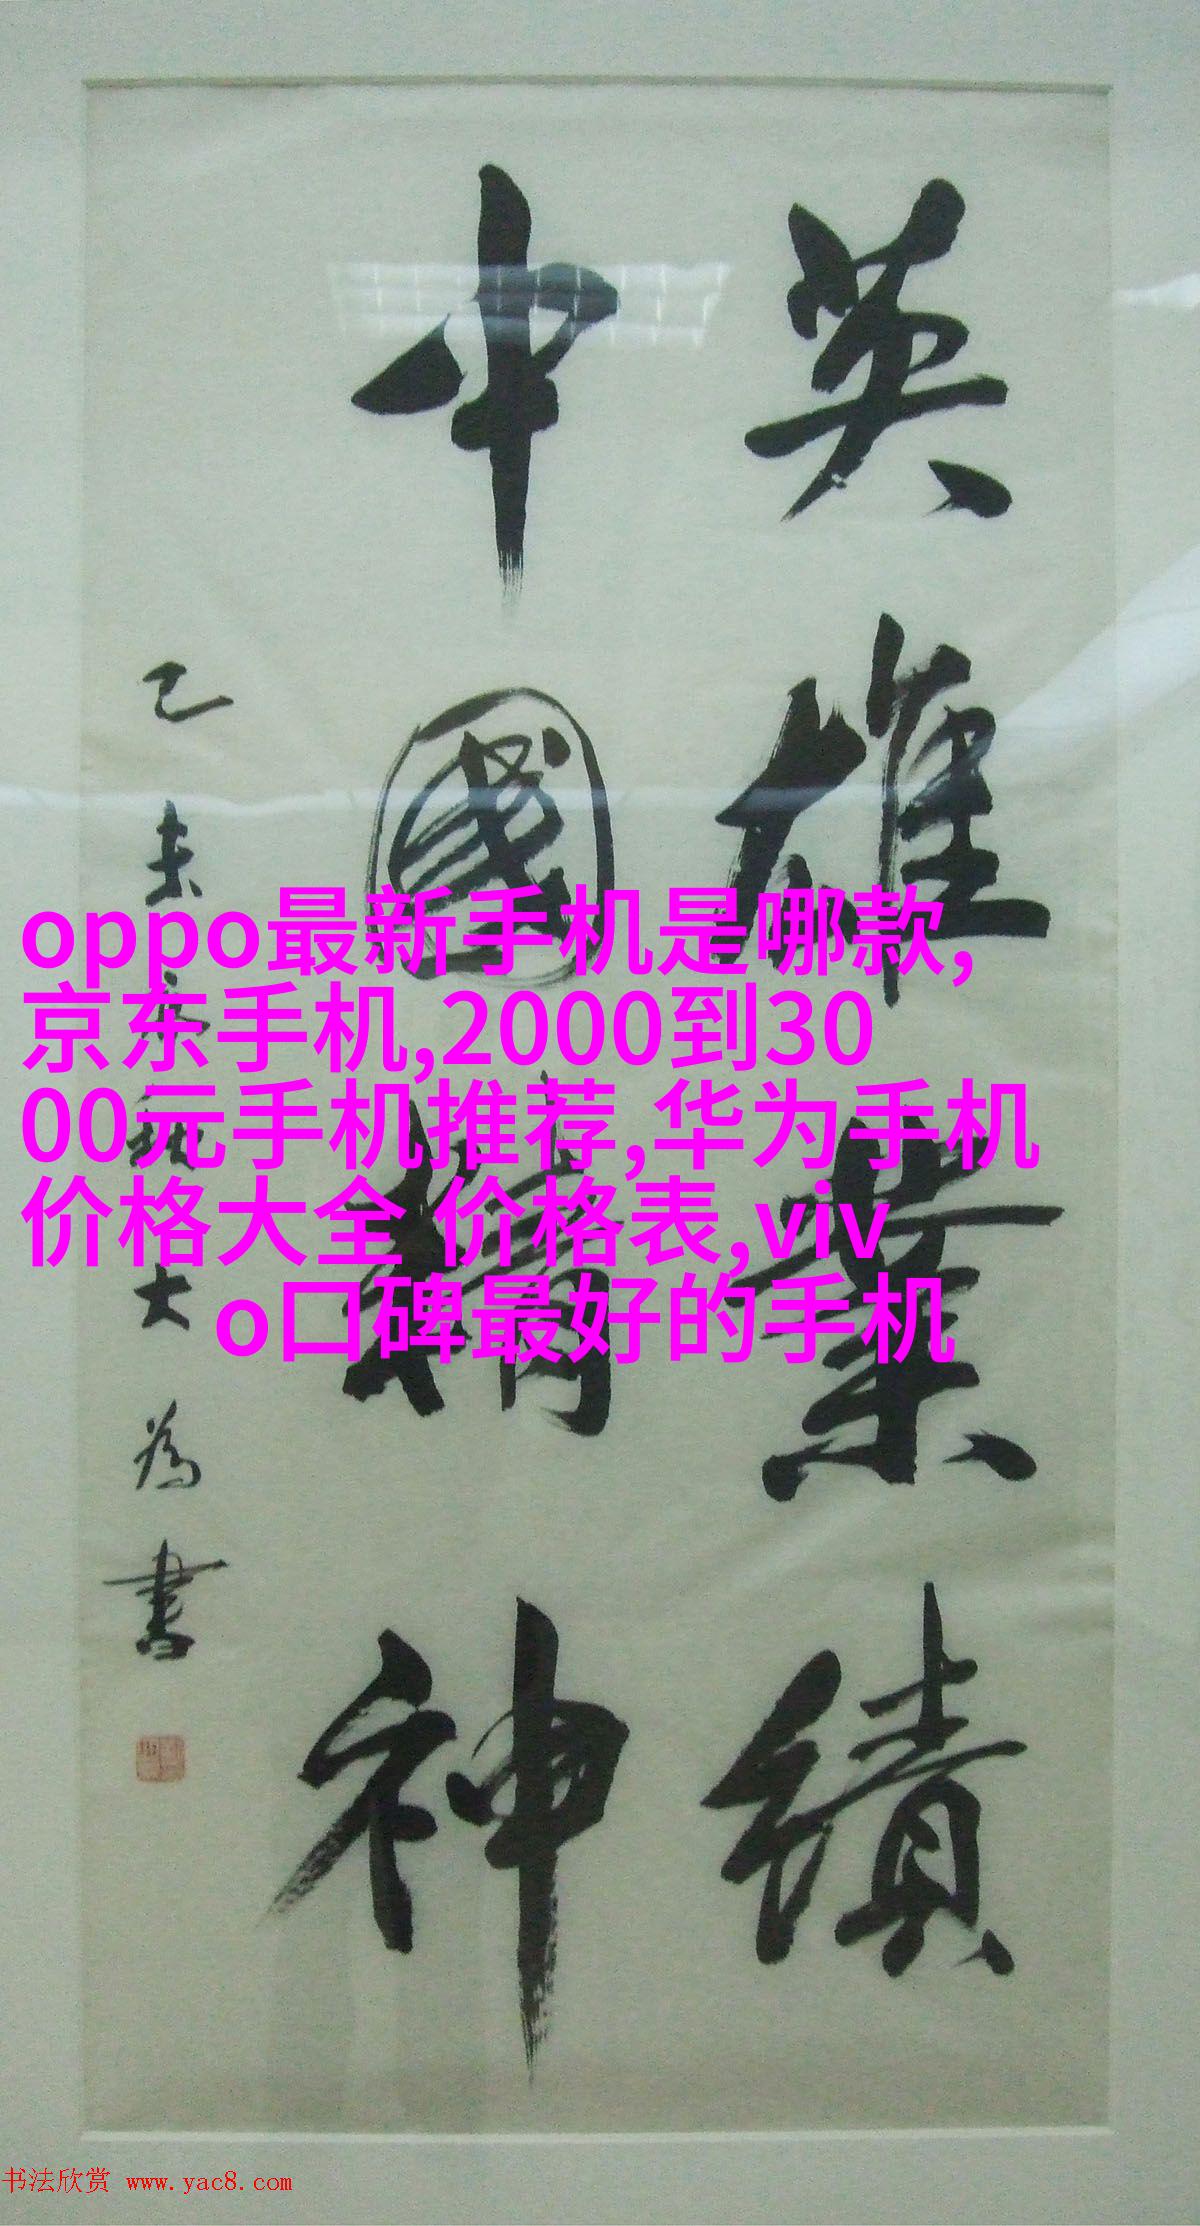 英雄業績
中國精神
乙未
大為書
oppo最新手机是哪款,
京东手机,2000到30
00元手机推荐,华为手机
价格大全 价格表,viv
o口碑最好的手机
书法欣赏 www.yac8.com